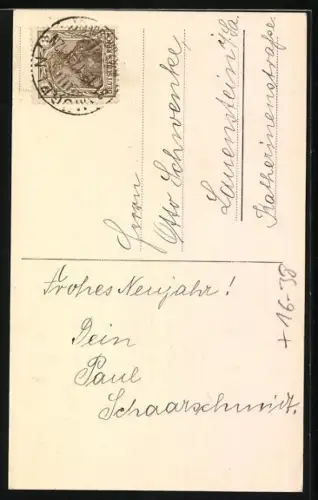 Herrn
Otto Schwenke,
Lauenstein i/Sa
Katherinenstraße
Frohes Neujahr!
Dein
Paul
Schaarschmidt.
+ 16-38